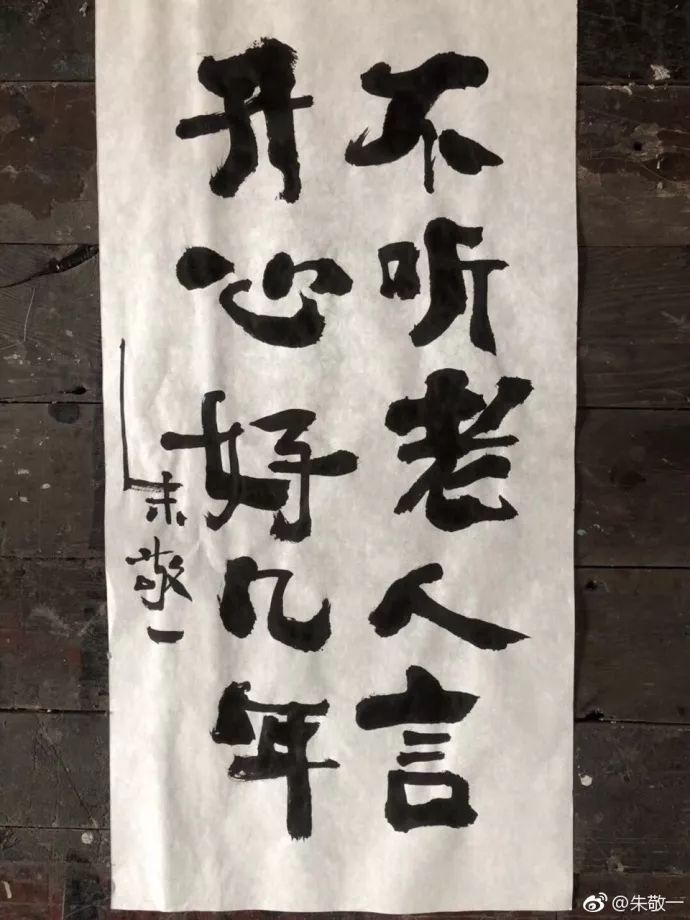 不听老人言
开心好几年
朱敬一
@朱敬一